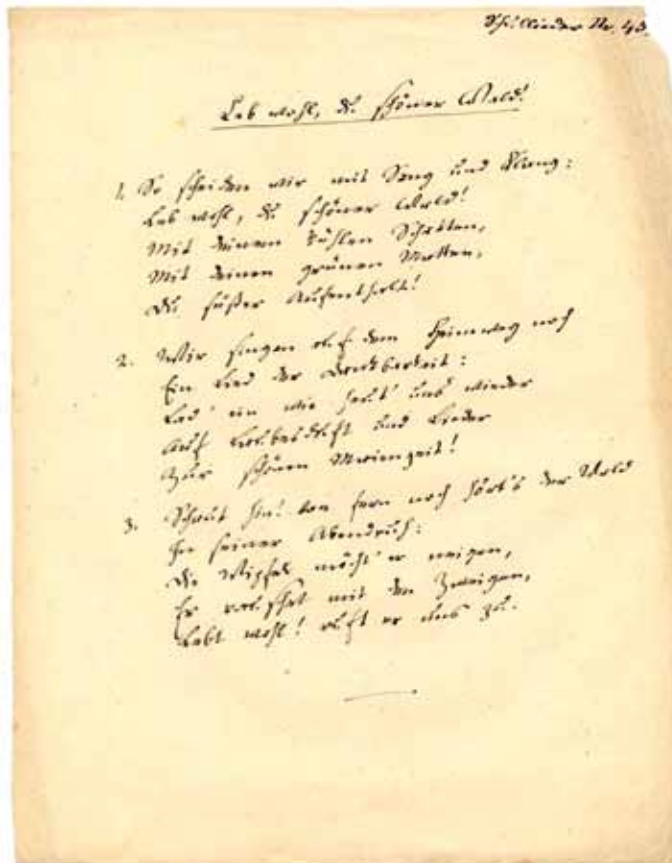 Schullieder Nr. 43.
Leb wohl, du schöner Wald!
1. So scheiden wir mit Sang und Klang:
Leb wohl, du schöner Wald!
Mit deinem kühlen Schatten,
Mit deinen grünen Matten,
Du süßer Aufenthalt!
2. Wir singen auf dem Heimweg noch
Ein Lied der Dankbarkeit:
Lad' ein wie heut' uns wieder
Auf Laubesduft und Lieder
Zur schönen Maienzeit!
3. Schaut hin! von fern noch hört's der Wald
In seiner Abendruh:
Die Wipfel möcht' er neigen,
Er rauschet mit den Zweigen,
Lebt wohl! ruft er uns zu.